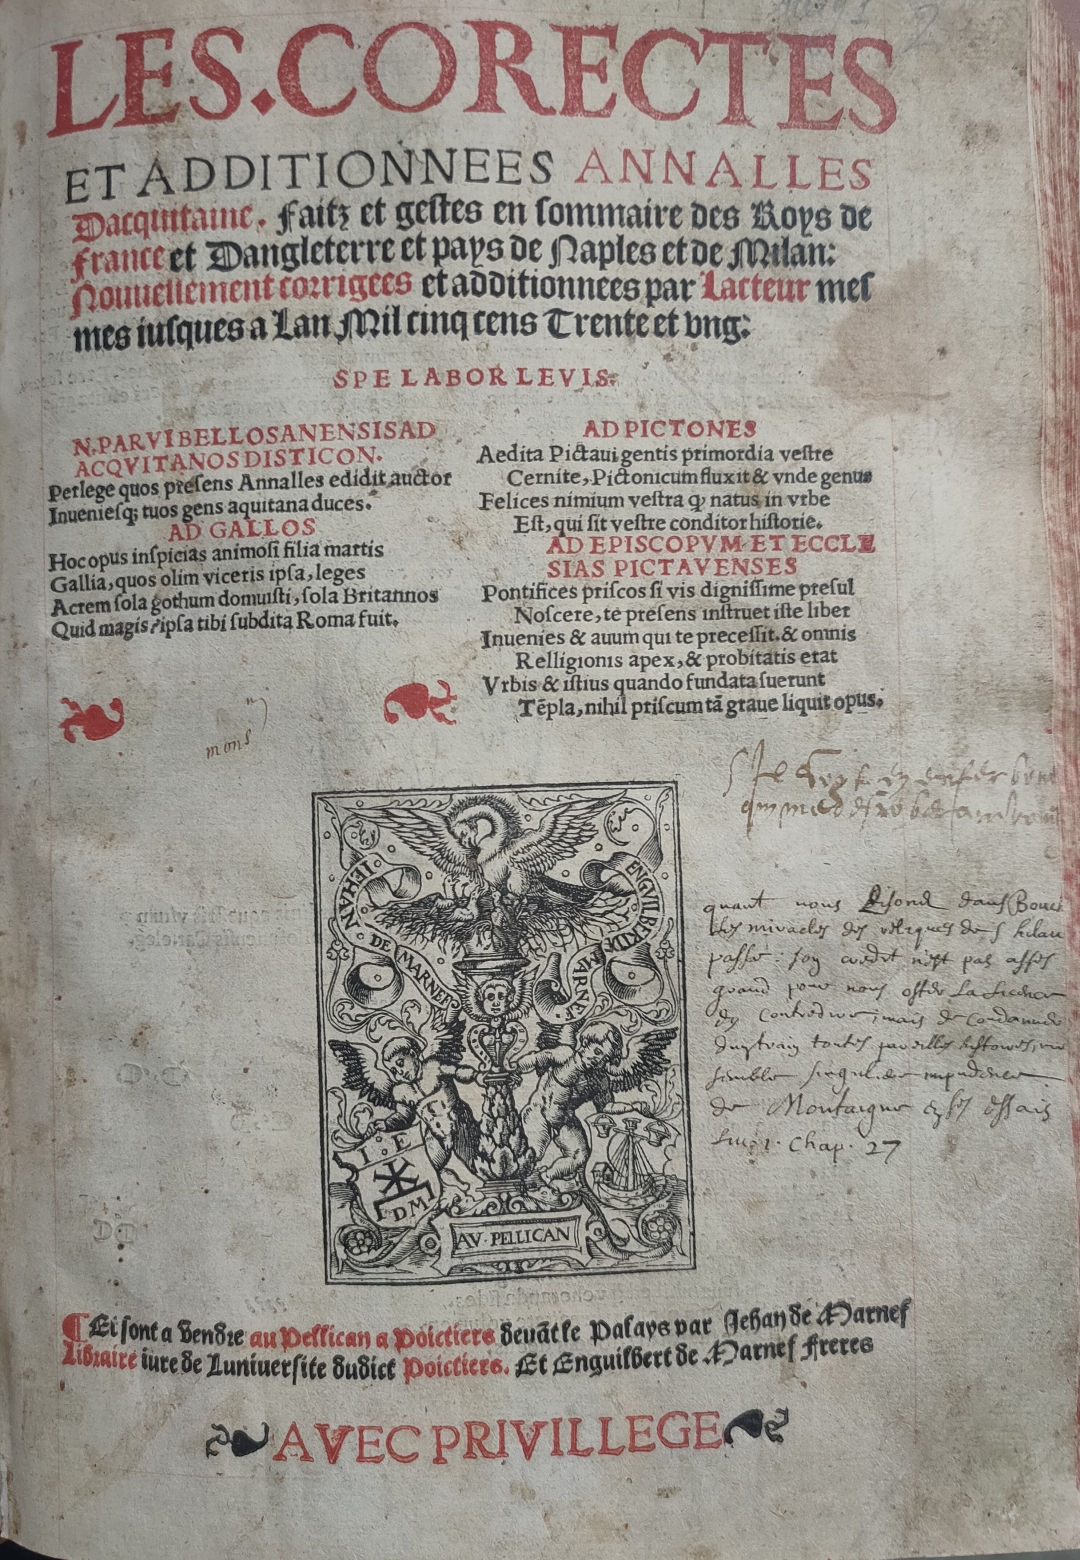 LES.CORECTES
ET ADDITIONNEES ANNALLES
Dacquitaine. faitz et gestes en sommaire des Roys de
france et Dangleterre et pays de Naples et de Milan:
Nouuellement corrigees et additionnees par Lacteur mes
mes iusques a Lan Mil cinq cens Trente et vng:
SPE LABOR LEVIS:
N. PARVI BELLOSANENSIS AD
ACQVITANOS DISTICON.
Perlege quos presens Annalles edidit auctor
Inueniesq; tuos gens aquitana duces.
AD GALLOS
Hoc opus inspicias animosi filia martis
Gallia, quos olim viceris ipsa, leges
Acrem sola gothum domuisti, sola Britannos
Quid magis? ipsa tibi subdita Roma fuit.
AD PICTONES
Aedita Pictaui gentis primordia vestre
Cernite, Pictonicum fluxit & vnde genus
Felices nimium vestra q; natus in vrbe
Est, qui sit vestre conditor historie.
AD EPISCOPVM ET ECCLE
SIAS PICTAVENSES
Pontifices priscos si vis dignissime presul
Noscere, te presens instruet iste liber
Inuenies & auum qui te precessit. & omnis
Relligionis apex, & probitatis erat
Vrbis & istius quando fundata fuerunt
Tẽpla, nihil priscum tã graue liquit opus.
mons
quant nous Lisons dans Bouch
les miracles des reliques de S hilaire
passe: son credit n'est pas assés
grand pour nous oster La Licence
dy contredire, mais de Condamner
dun train toutes pareilles histoires, me
semble singuliere impudence
de Montaigne en ses essais
Liur 1. Chap. 27
IEHAN DE MARNEF
ENGVILBERT DE MARNEF
I. E
DM
AV. PELLICAN
¶ Et sont a vendre au Pellican a Poictiers deuãt le Palays par Jehan de Marnef
Libraire iure de Luniuersite dudict Poictiers. Et Enguilbert de Marnef freres
AVEC PRIVILLEGE